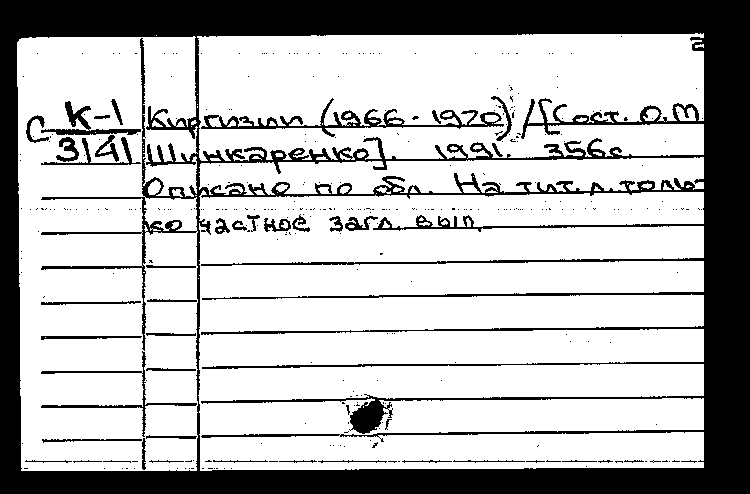 2
С К-1 Киргизии (1966-1970) / [Сост. О.М.
3141 Шинкаренко]. 1991. 356с.
Описано по обл. На тит.л. толь-
ко частное загл. вып.